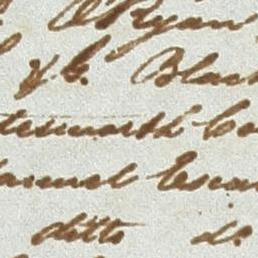 O'Ryan
Y G. Blac
tesworth Co
amuel Evan
ditto do